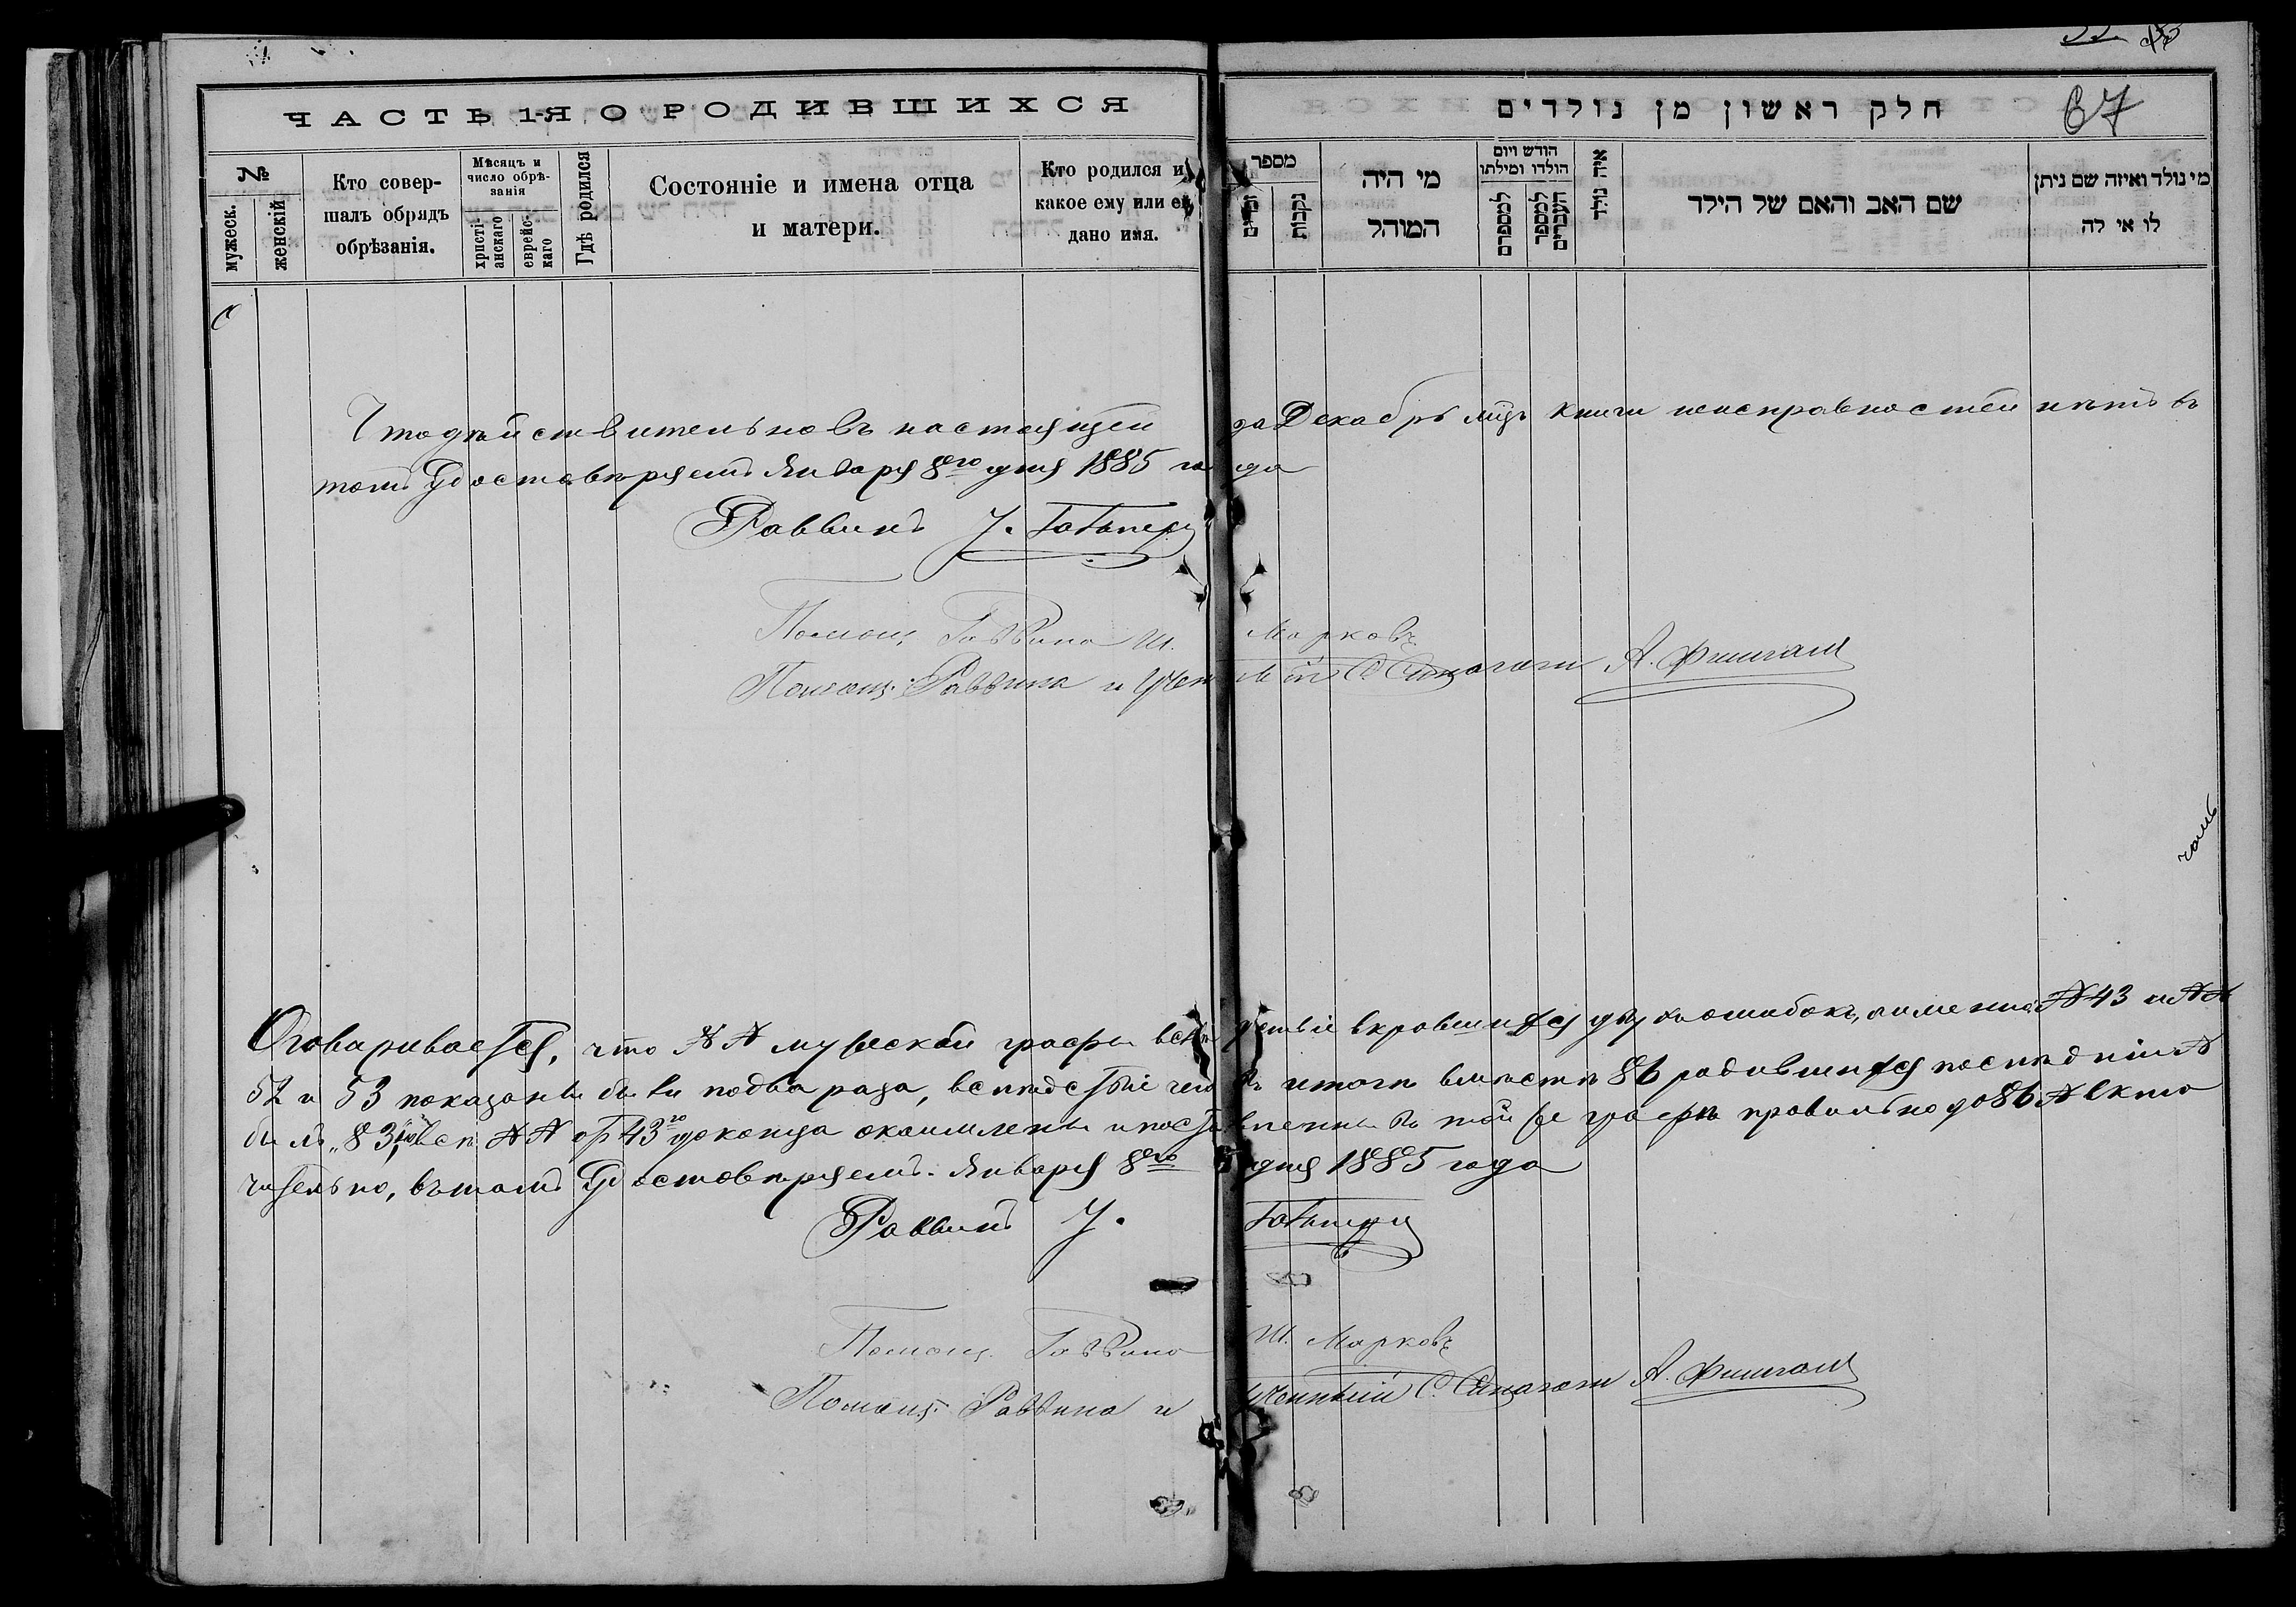 67
ЧАСТЬ 1-Я О РОДИВШИХСЯ
חלק ראשון מן נולדים
№
мужеск.
женскій
Кто совер-
шалъ обрядъ
обрѣзанія.
Мѣсяцъ и
число обрѣ-
занія
христі-
анскаго
еврейс-
каго
Гдѣ родился
Состояніе и имена отца
и матери.
Кто родился и
какое ему или ей
дано имя.
מספר
זכרים
נקבות
מי היה
המוהל
הודש ויום
הולדו ומילתו
למספרם
למספר
העברים
איה נולד
שם האב והאם של הילד
מי נולד ואיזה שם ניתן
לו אי לה
Что дѣйствительно въ настоящей за Декабрь мѣц книги неисправностей нѣтъ въ
томъ Удостовѣряемъ Января 8го дня 1885 года
Раввинъ У.
Помощ. Раввина Ш. Марковъ
Помощ. Раввина и Ученый С. Синагоги А.
Оговаривается, что №№ мужеской графы вкравшихся ошибокъ, а именно № 43 и №№
52 и 53 показаны были по два раза, вслѣдствіе чего въ итогѣ вмѣсто 86 родившихся послѣдній №
былъ „83", всѣ №№ отъ 43го до конца и поставлены въ той же графѣ правильно до 86 № вклю
чительно, въ томъ Удостовѣряемъ. Января 8го дня 1885 года
Раввинъ У.
Помощ. Раввина Ш. Марковъ
Помощ. Раввина и Ученый С. Синагоги А.